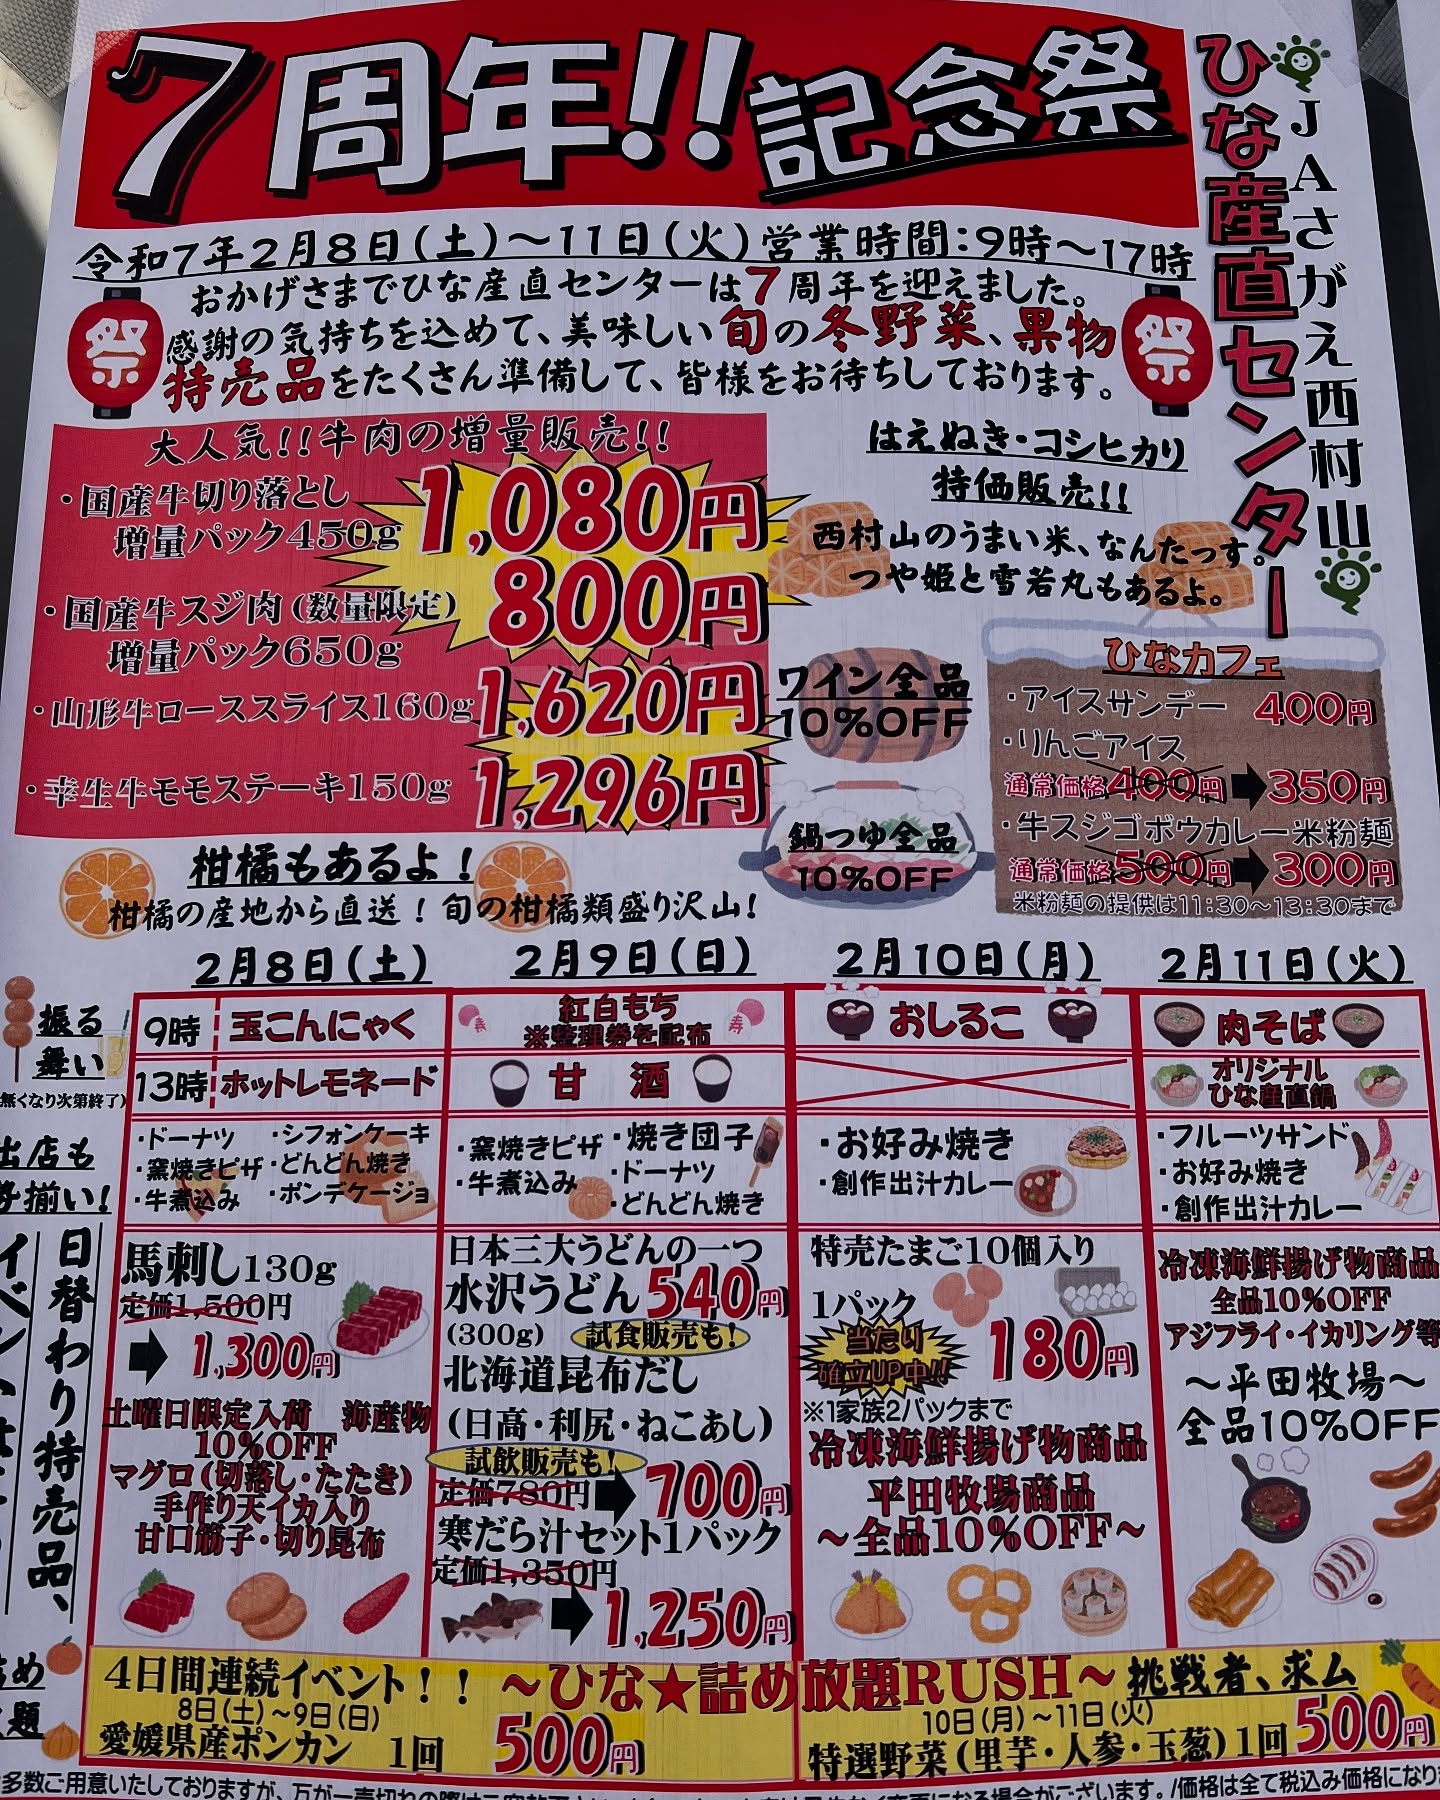 7周年!!記念祭
JAさがえ西村山
ひな産直センター
令和7年2月8日(土)~11日(火)営業時間:9時~17時
おかげさまでひな産直センターは7周年を迎えました。
感謝の気持ちを込めて、美味しい旬の冬野菜、果物
特売品をたくさん準備して、皆様をお待ちしております。
祭
祭
大人気!!牛肉の増量販売!!
・国産牛切り落とし
増量パック450g 1,080円
・国産牛スジ肉(数量限定)
増量パック650g 800円
・山形牛ローススライス160g 1,620円
・幸生牛モモステーキ150g 1,296円
はえぬき・コシヒカリ
特価販売!!
西村山のうまい米、なんたっす。
つや姫と雪若丸もあるよ。
ワイン全品
10%OFF
鍋つゆ全品
10%OFF
ひなカフェ
・アイスサンデー 400円
・りんごアイス
通常価格400円➡350円
・牛スジゴボウカレー米粉麺
通常価格500円➡300円
米粉麺の提供は11:30~13:30まで
柑橘もあるよ!
柑橘の産地から直送!旬の柑橘類盛り沢山!
2月8日(土)
2月9日(日)
2月10日(月)
2月11日(火)
振る
舞い
無くなり次第終了)
9時 玉こんにゃく
紅白もち
※整理券を配布
寿
おしるこ
肉そば
13時 ホットレモネード
甘酒
オリジナル
ひな産直鍋
出店も
揃い!
・ドーナツ ・シフォンケーキ
・窯焼きピザ ・どんどん焼き
・牛煮込み ・ポンデケージョ
・窯焼きピザ ・焼き団子
・牛煮込み ・ドーナツ
・どんどん焼き
・お好み焼き
・創作出汁カレー
・フルーツサンド
・お好み焼き
・創作出汁カレー
日替わり特売品、
馬刺し130g
定価1,500円
➡1,300円
土曜日限定入荷 海産物
10%OFF
マグロ(切落し・たたき)
手作り天イカ入り
甘口筋子・切り昆布
日本三大うどんの一つ
水沢うどん 540円
(300g) 試食販売も!
北海道昆布だし
(日高・利尻・ねこあし)
試飲販売も!
定価780円➡700円
寒だら汁セット1パック
定価1,350円
➡1,250円
特売たまご10個入り
1パック
当たり
確立UP中!!
180円
※1家族2パックまで
冷凍海鮮揚げ物商品
平田牧場商品
~全品10%OFF~
冷凍海鮮揚げ物商品
全品10%OFF
アジフライ・イカリング等
~平田牧場~
全品10%OFF
4日間連続イベント!! ~ひな★詰め放題RUSH~挑戦者、求ム
8日(土)~9日(日)
愛媛県産ポンカン 1回 500円
10日(月)~11日(火)
特選野菜(里芋・人参・玉葱)1回 500円
多数ご用意いたしておりますが、万が一売切れの際は
場合がございます。/価格は全て税込み価格になりま